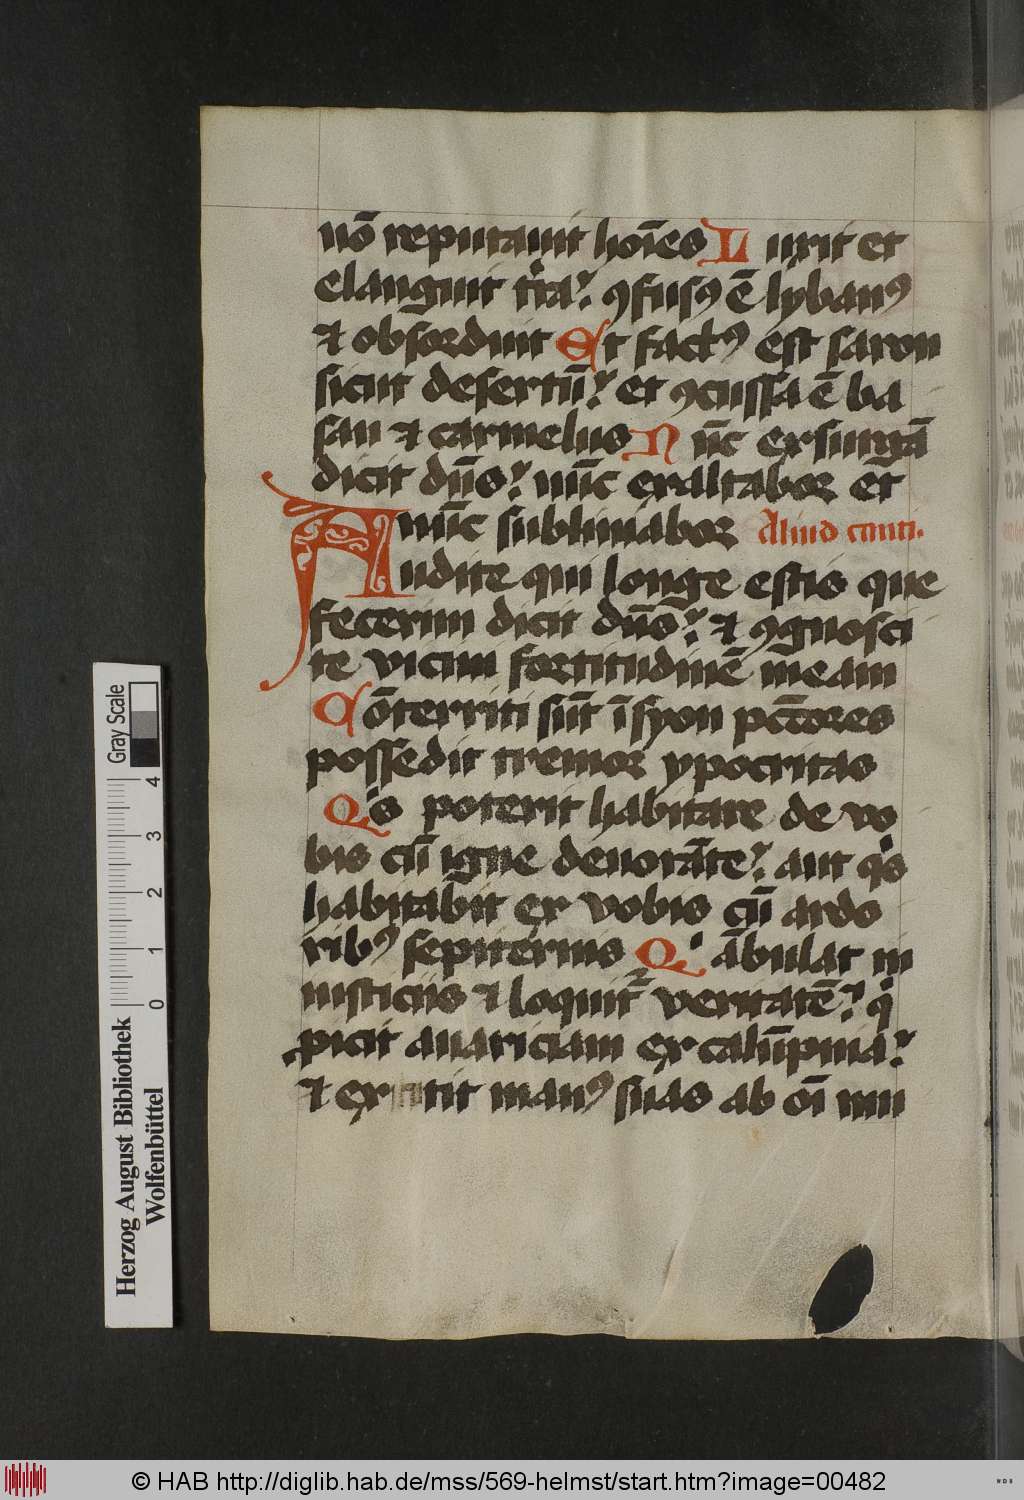 nō reputauit hoīes Luxit et
elanguit tr̄ra? ꝯfusꝰ ē lybanꝰ
⁊ obsorduit Et factꝰ est saron
sicut desertū? et ꝯcussa ē ba
san ⁊ carmelus Nūc exsurgā
dicit dn̄s? nūc exaltabor et̄
nūc sublimabor Aliud canti.
Audite qui longe estis que
fecerim dicit dn̄s? ⁊ ꝯgnosci
te vicini fortitudinē meam
Cōterriti sūt ī syon pcc̄ores
possedit tremor ypocritas
Qͥs poterit habitare de vo
bis cū igne deuorāte? aut qͥs
habitabit ex vobis cū ardo
ribꝰ sepiternis Qͥ ābulat in
iusticiis ⁊ loquit᷑ veritatē? qͥ
ꝓicit auariciam ex calūpnia?
⁊ ex tit manꝰ suas ab oī mu
Gray Scale
0 1 2 3 4
Herzog August Bibliothek
Wolfenbüttel
© HAB http://diglib.hab.de/mss/569-helmst/start.htm?image=00482